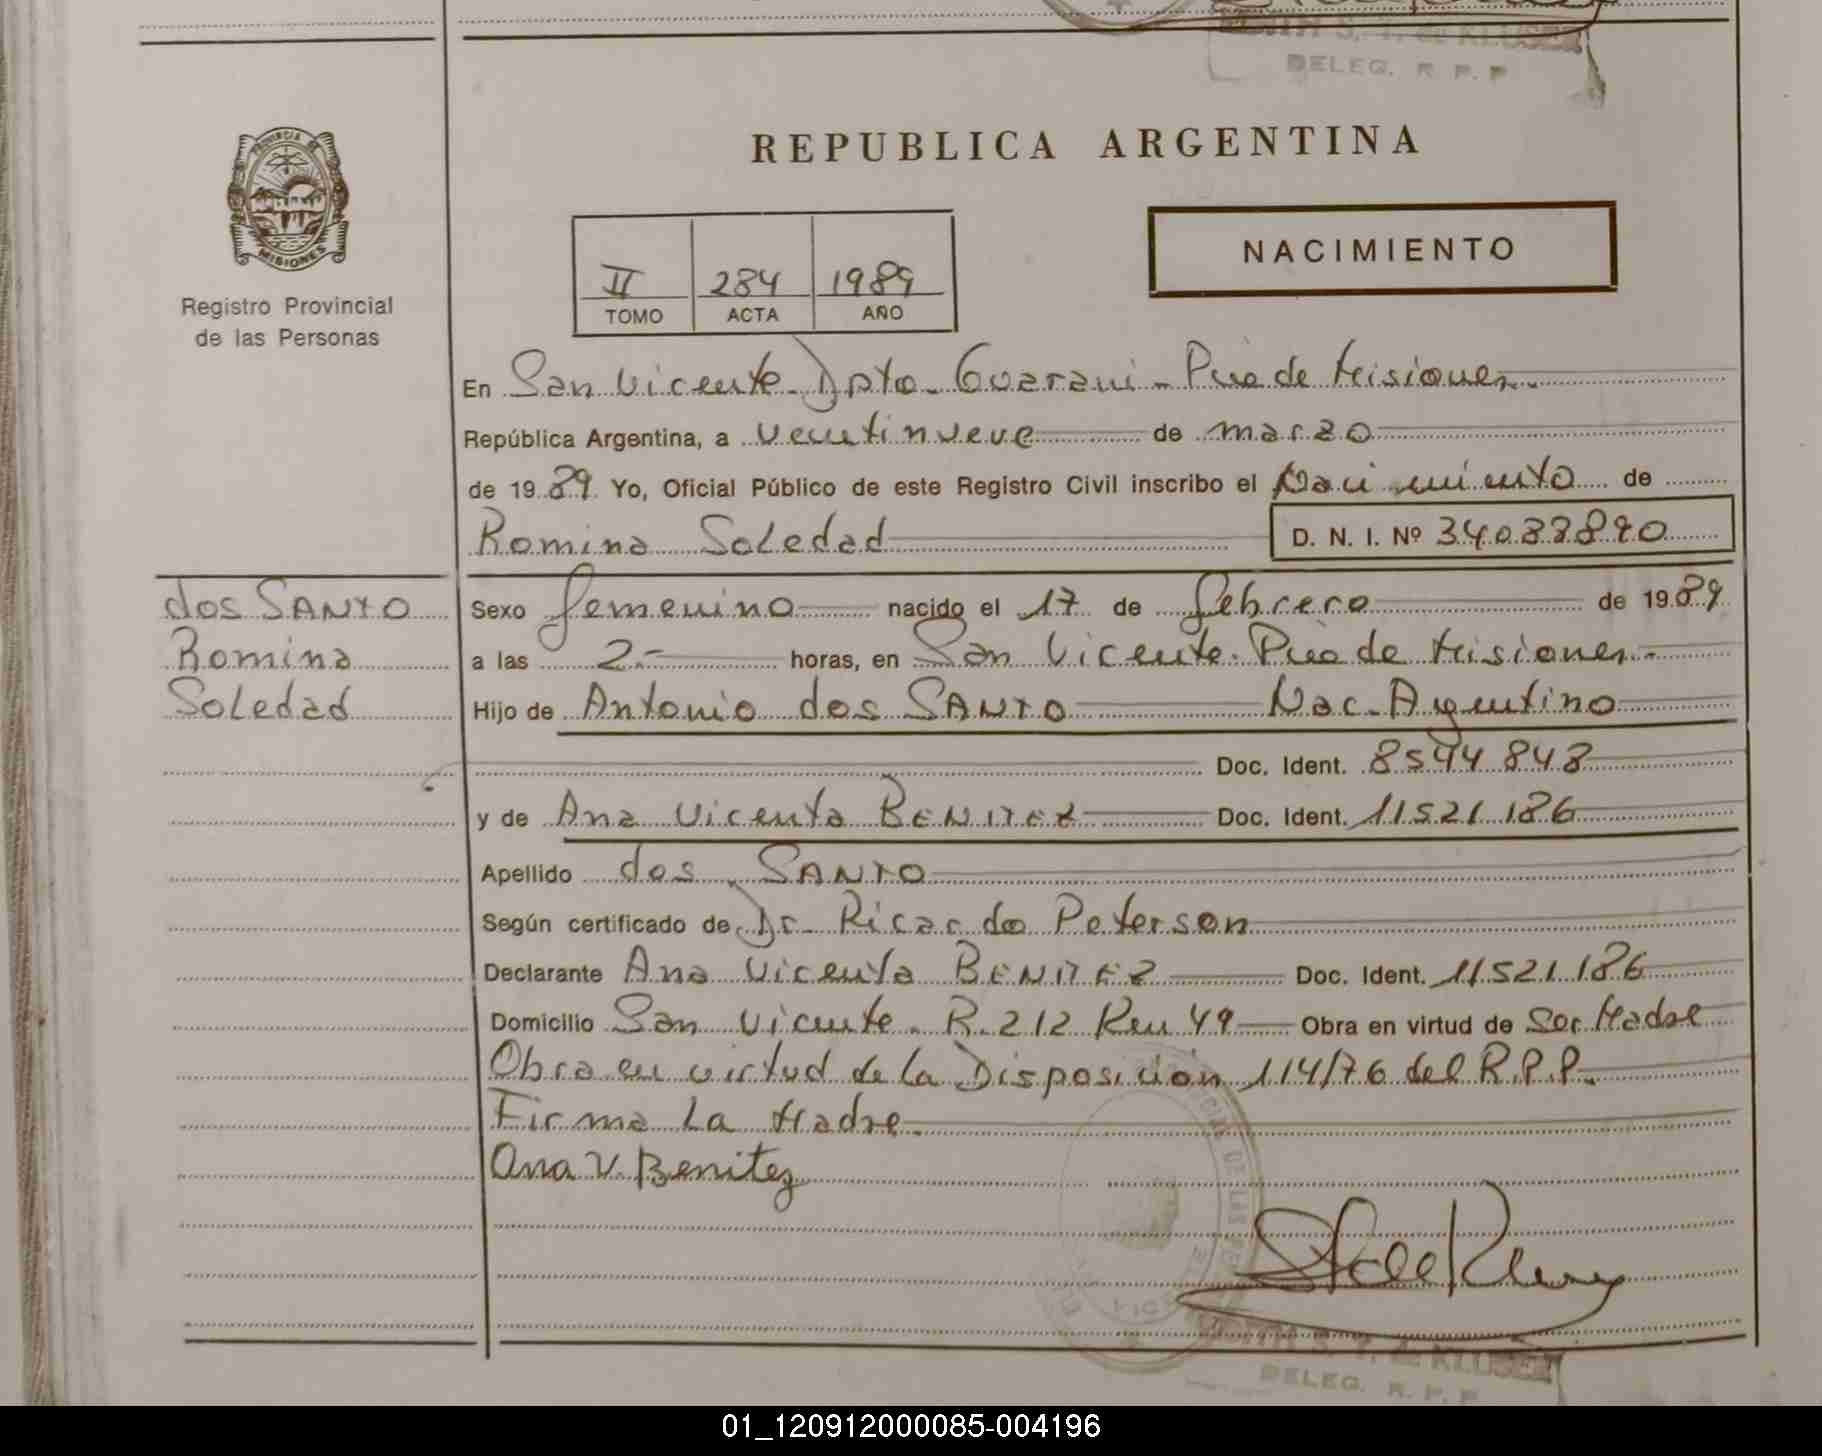 JUDITH S. T. de KLUSER
DELEG. R. P. P
PROVINCIA DE
MISIONES
Registro Provincial
de las Personas
REPUBLICA ARGENTINA
II 284 1989
TOMO ACTA AÑO
NACIMIENTO
En San Vicente Dpto. Guarani - Pcia de Misiones.
República Argentina, a veintinueve de marzo
de 1989 Yo, Oficial Público de este Registro Civil inscribo el Nacimiento de
Romina Soledad D. N. I. Nº 34.038.890
dos SANTO
Romina
Soledad
Sexo femenino nacido el 17 de febrero de 1989
a las 2.- horas, en San Vicente. Pcia de Misiones.-
Hijo de Antonio dos SANTO Nac. Argentino
Doc. Ident. 8544.848
y de Ana Vicenta BENITEZ Doc. Ident. 11.521.186
Apellido dos SANTO
Según certificado de Dr. Ricardo Peterson
Declarante Ana Vicenta BENITEZ Doc. Ident. 11.521.186
Domicilio San Vicente. R. 212 Km 49 Obra en virtud de Ser Madre
Obra en virtud de la Disposición 114/76 del R.P.P.
Firma La Madre.
Ana V. Benitez
S. T. de KLUSER
DELEG. R. P. P
01_120912000085-004196